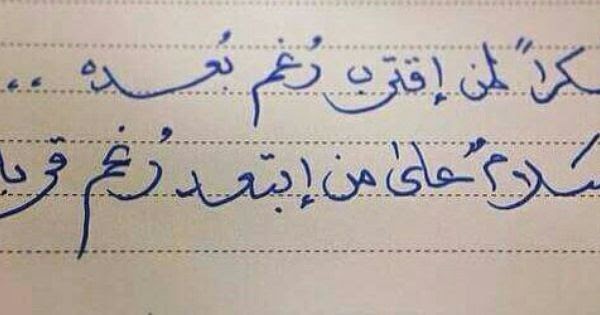 شكراً لمن إقترب رُغم بُعده ..
سلامٌ على من إبتعد رُغم قربه